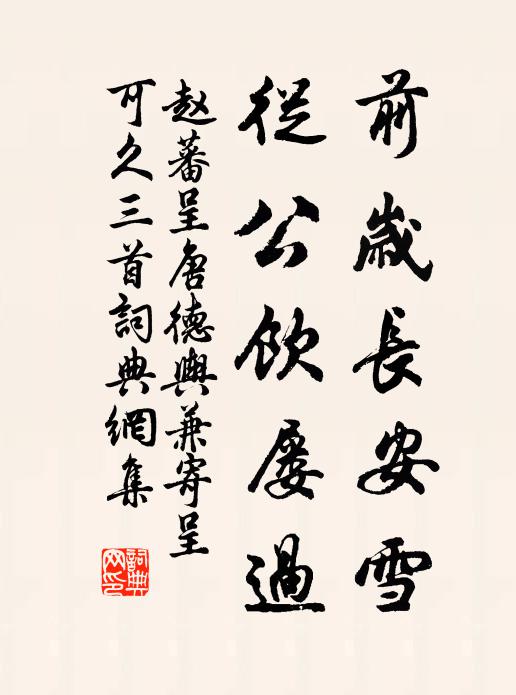 前歲長安雪
從公飲屢過
赵蕃呈唐德輿兼寄呈
可久三首詞典網集
詞典网印